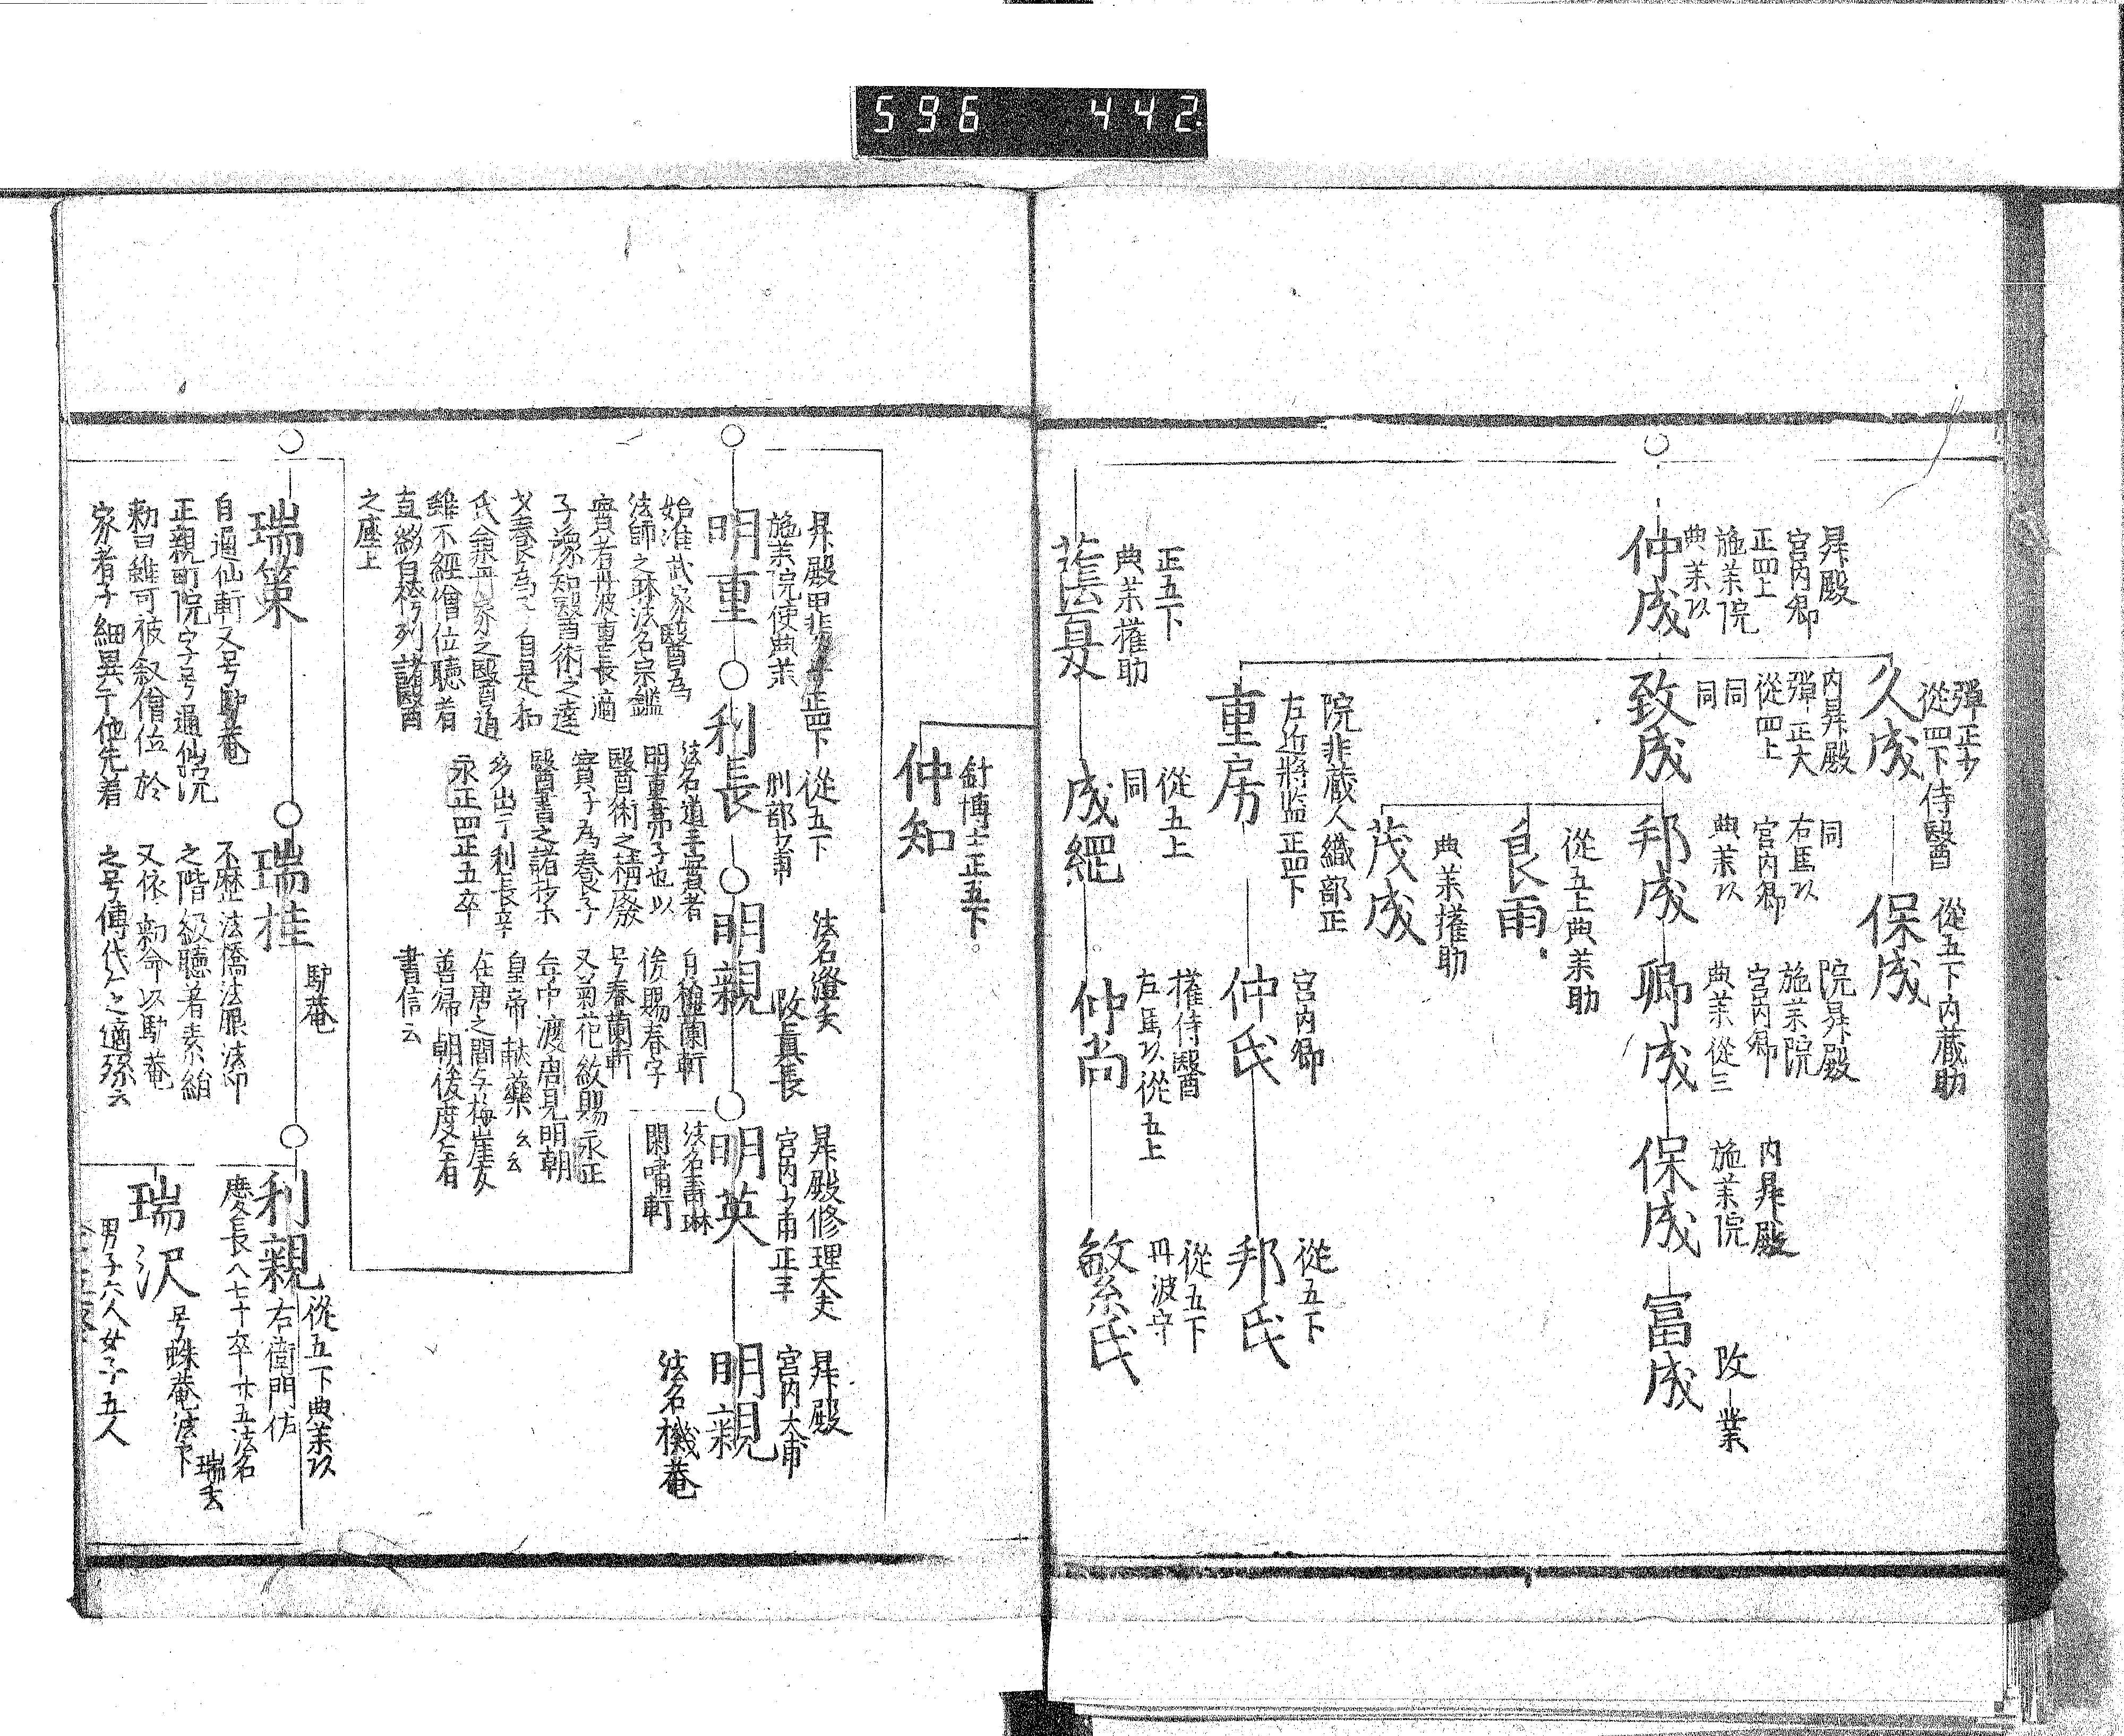 596 442
彈正少
從四下侍醫
久成
從五下内蔵助
保成
昇殿
宮内卿
正四上
施薬院
典薬以
仲成
内昇殿
彈正大
從四上
同
同
致成
同
右馬以
宮内卿
典薬以
邦成
院昇殿
施薬院
宮内卿
典薬從三
卿成
内昇殿
施薬院
保成
改業
富成
從五上典薬助
良雨
典薬権助
茂成
院非蔵人織部正
左近將監正四下
重房
宮内卿
仲氏
從五下
邦氏
正五下
典薬権助
從五上
同
成繼
権侍醫
左馬以從五上
仲尚
從五下
丹波守
繁氏
針博士正五下
仲知
施薬院使典薬
明重
始准武家醫為
法師之躰法名宗鑑
實者丹波重長適
子瀉知醫術之達
父春長為子自是和
氏兼丹家之醫道
雖不經僧位聴着
直綴自称列諸醫
之座上
從五下
刑部少甫
利長
法名道
明重弟子也以
醫術之精發
實子為養子
醫書之諸抄
多出于利長
永正四正五卒
改眞長
明親
自称蘭軒
後賜春字
号春蘭軒
又菊花紋賜永正
年中渡唐見明朝
皇帝献藥云云
在唐之間与梅崖友
善歸朝後度々有
書信云
昇殿修理大夫
宮内少甫正三
明英
法名壽琳
閑嘯軒
昇殿
宮内大甫
明親
法名機菴
瑞策
自通仙軒又号馿菴
正親町院字号通仙院
勅曰雖可被叙僧位於
家者子細異于他先着
瑞桂
馿菴
不歴法橋法眼法印
之階級聴着素絹
又依勅命以馿菴
之号傳代々之適孫云
利親
從五下典薬以
右衛門佐
慶長八七十卒廿五法名
瑞玄
瑞沢
号蛛菴法下
男子六人女子五人